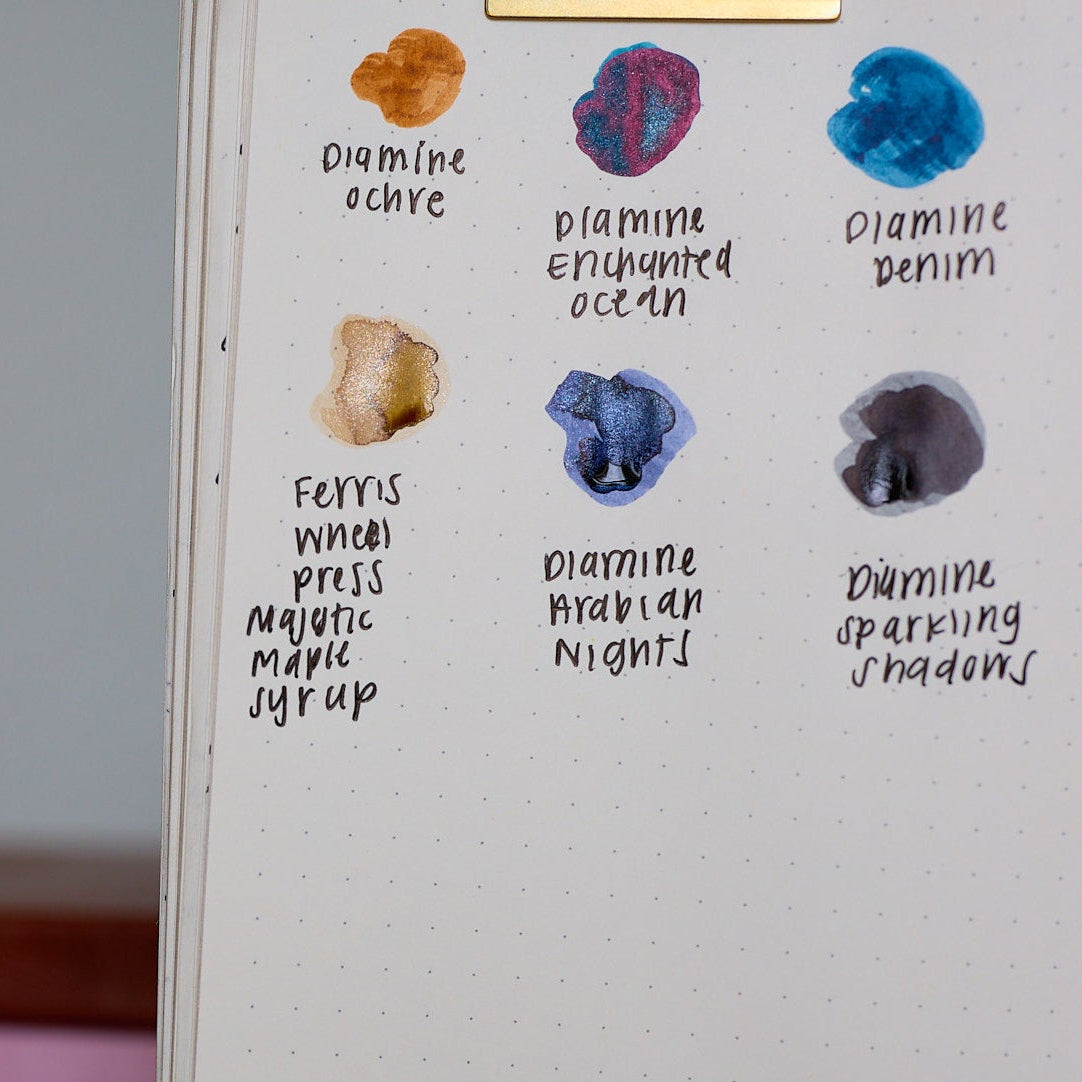 Diamine
ochre
Diamine
Enchanted
ocean
Diamine
Denim
Ferris
wheel
press
Majetic
Maple
syrup
Diamine
Arabian
Nights
Diamine
sparkling
shadows